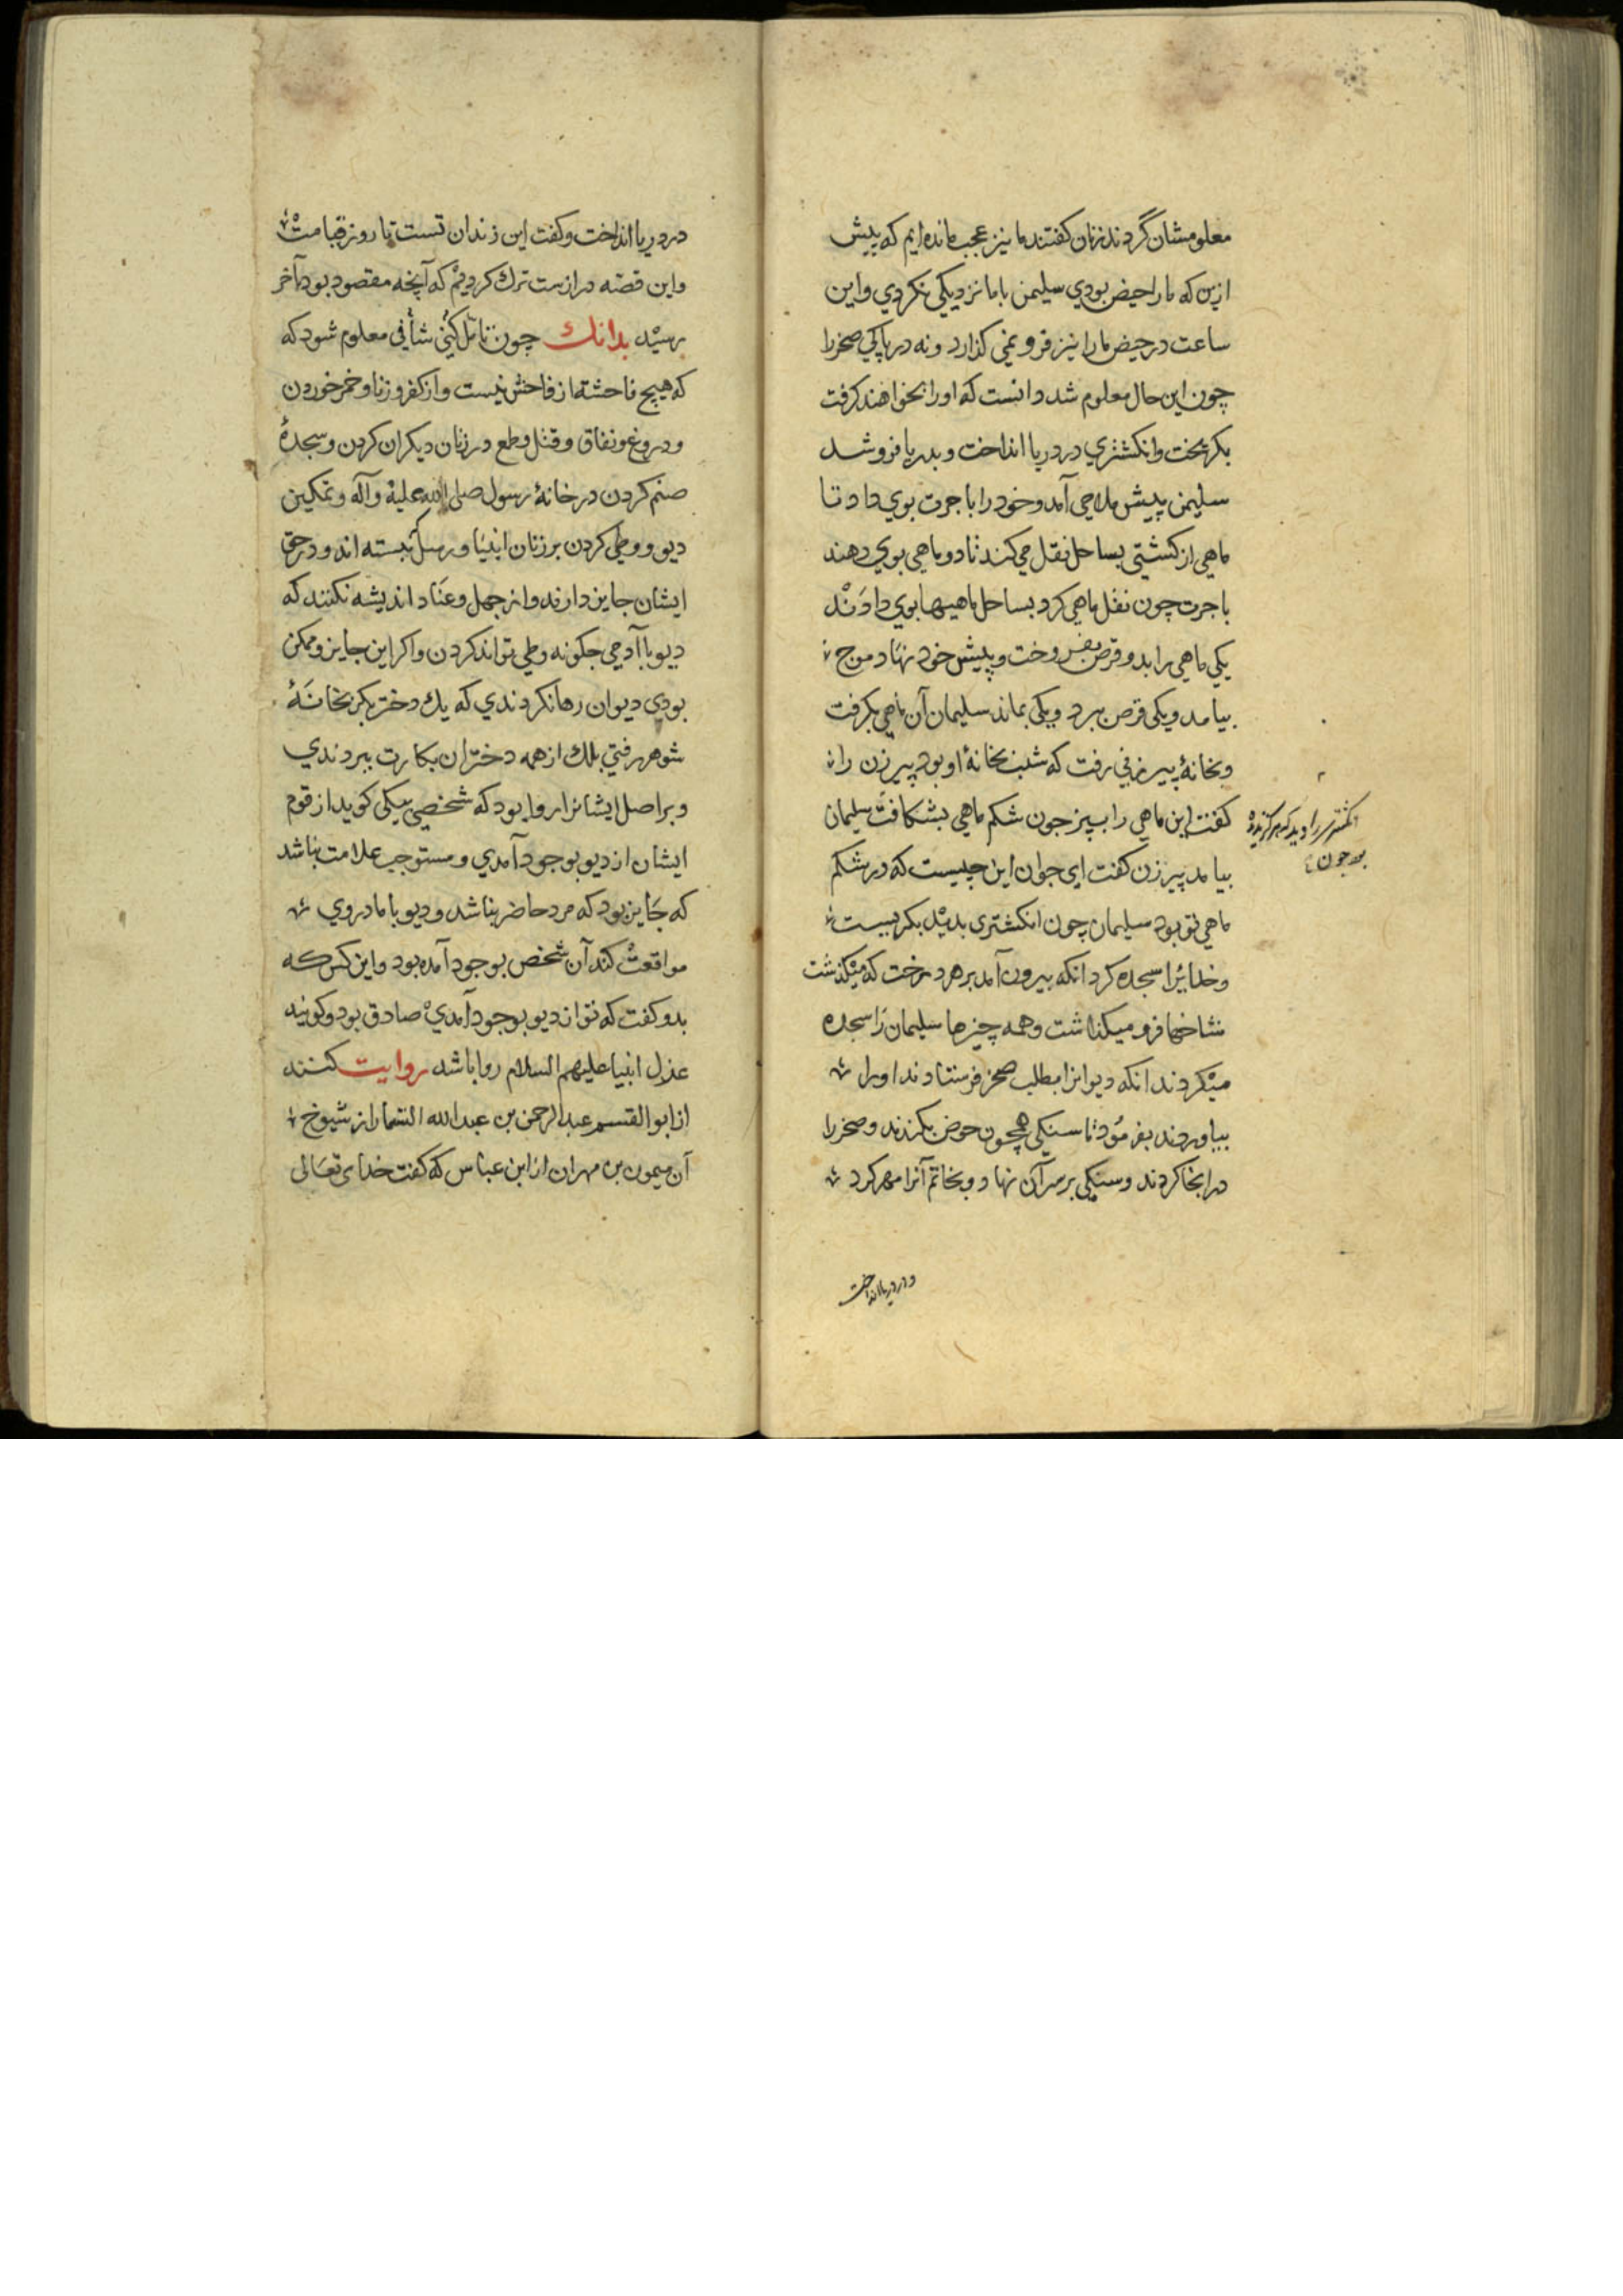 معلومشان گردند زنان گفتند ما نیز عجب مانده ایم که پیش
ازین که ما را حیض بودی سلیمن با ما نزدیکی نکردی و این
ساعت در حیض ما را نیز فرو نمی گذارد و نه در پاکی صخر را
چون این حال معلوم شد دانست که او را بخواهند گرفت
بگریخت و انگشتری در دریا انداخت و بدریا فرو شد
سلیمن پیش ملاحی آمد و خود را باجرت بوی داد تا
ماهی از کشتی بساحل نقل می کند تا دو ماهی بوی دهند
باجرت چون نقل ماهی کرد بساحل ماهیها بوی دادند
یکی ماهی را بدو قرص بفروخت و پیش خود نهاد موج
بیامد و یکی قرص ببرد و یکی بماند سلیمان آن ماهی بگرفت
و بخانهٔ پیرزنی رفت که شب بخانهٔ او بود پیرزن را
گفت این ماهی را بپز چون شکم ماهی بشکافت سلیمان
انگشتری را دید که
بود چون
بیامد پیرزن گفت ای جوان این چیست که در شکم
ماهی تو بود سلیمان چون انگشتری بدید بگریست
و خدایرا سجده کرد انکه بیرون آمد بر هر درخت که میگذشت
شاخها فرو میگذاشت و همه چیزها سلیمان را سجده
میکردند انکه دیوانرا بطلب صخر فرستادند او را
بیاوردند بفرمود تا سنگی همچون حوض بکندند و صخر را
درانجا کردند و سنگی بر سر آن نهاد و بخاتم آنرا مهر کرد
و در دریا انداخت
در دریا انداخت و گفت این زندان تست تا روز قیامت
و این قصه درازست ترک کردیم که آنچه مقصود بود بآخر
رسید بدانک چون تامل کنی شافی معلوم شود که
که هیچ فاحشه از فاحش نیست و از کفر و زنا و خمر خوردن
و دروغ و نفاق و قتل و طمع در زنان دیگران کردن و سجدهٔ
صنم کردن در خانهٔ رسول صلی الله علیه و آله و تمکین
دیو و وطی کردن بر زنان انبیا و رسل بسته اند و در حق
ایشان جایز دارند و از جهل و عناد اندیشه نکنند که
دیو با آدمی چگونه وطی تواند کردن و اگر این جایز و ممکن
بودی دیوان رها نکردندی که یک دختر بکر بخانهٔ
شوهر رفتی بلک از همه دختران بکارت ببردندی
و بر اصل ایشانرا روا بود که شخصی یکی گوید از قوم
ایشان از دیو بوجود آمدی و مستوجب علامت نباشد
که جایز بود که مرد حاضر نباشد و دیو با مادر وی
مواقعت کند آن شخص بوجود آمده بود و این کس که
بدو گفت که تو از دیو بوجود آمدی صادق بود و گویند
عذل انبیا علیهم السلام روا باشد روایت کنند
از ابو القسم عبد الرحمن بن عبد الله از شیوخ
آن میمون بن مهران از ابن عباس که گفت خدای تعالی